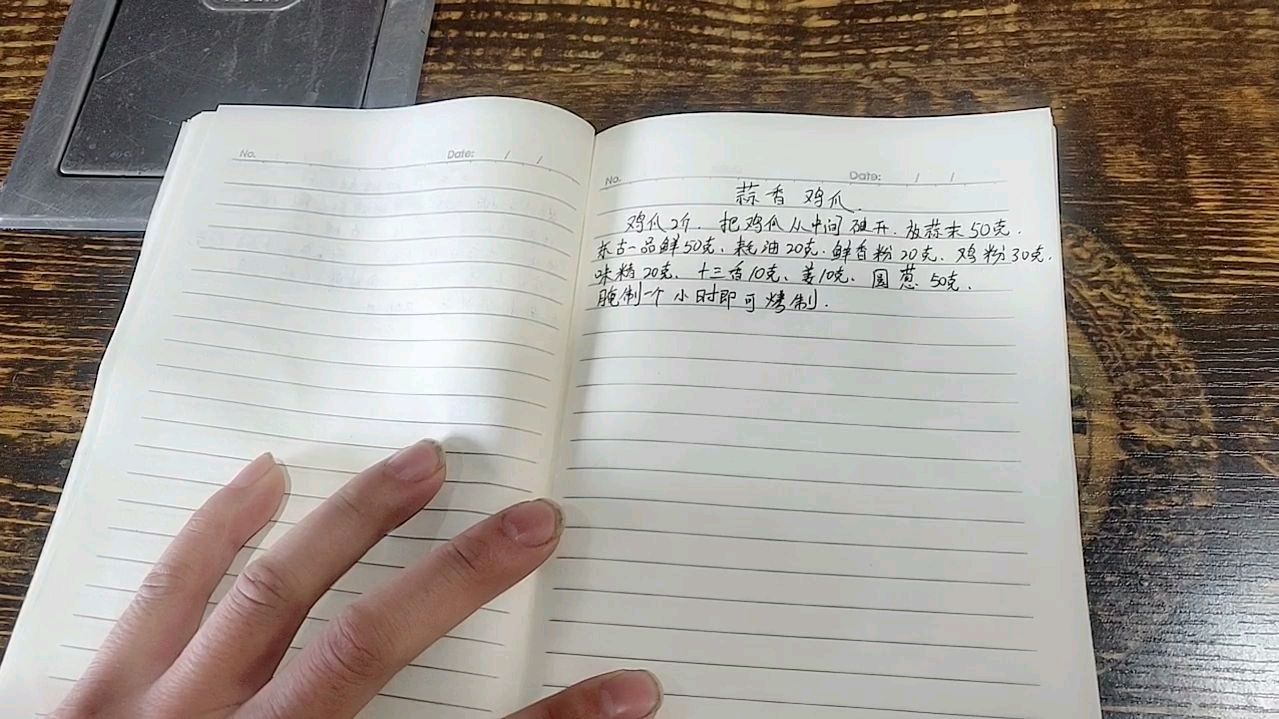 No.
Date: / /
No.
Date: / /
蒜香鸡爪.
鸡爪2斤. 把鸡爪从中间砍开. 放蒜末50克.
东古一品鲜50克. 耗油20克. 鲜香粉20克. 鸡粉30克.
味精20克、十三香10克、姜10克. 圆葱50克.
腌制一个小时即可烤制.